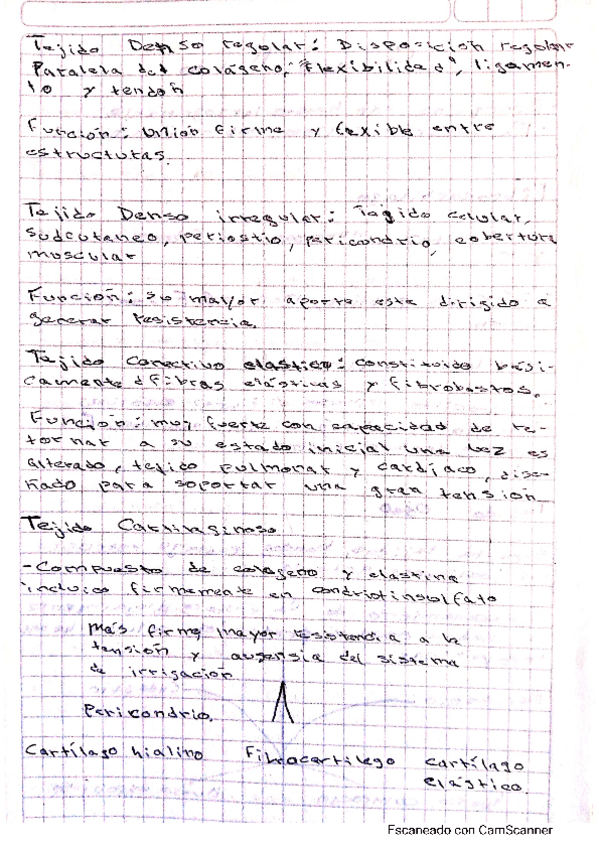 Tejido Denso regular: Disposicion regular
Paralela del colágeno, "flexibilidad", ligamen-
to y tendón
Función: Unión firme y flexible entre
estructuras.
Tejido Denso irregular: Tegido celular,
Sudcutaneo, periostio, pericondrio, cobertura
muscular
Función: su mayor aporte esta dirigido a
generar resistencia.
Tejido conectivo elastico: constituido bási-
camente d fibras elásticas y fibrobastos.
Función: muy fuerte con capacidad de re-
tornar a su estado inicial una vez es
alterado, tejido pulmonar y cardíaco, dise-
ñado para soportar una gran tension
Tejido Cartilaginoso
-Compuesto de colageno y elastina
incluico firmemente en condriotinsulfato
más firme, mayor resistencia a la
tensión y ausensia del sistema
de irrigacion
Pericondrio.
Cartílago hialino Fibrocartilego cartílago
elástico.
Escaneado con CamScanner